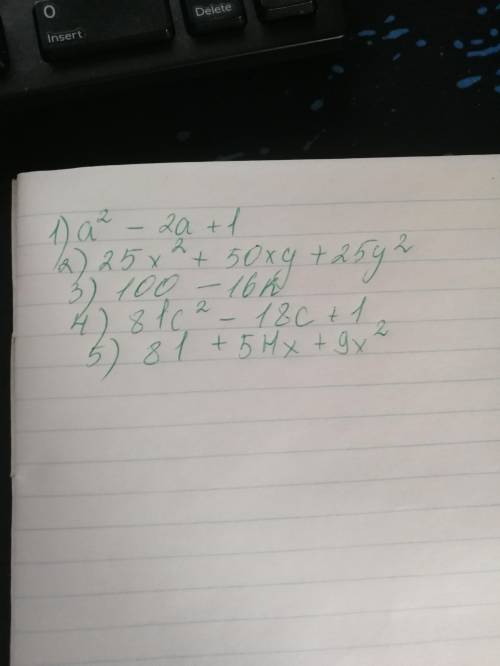 0
Insert
Delete
1) a² - 2a + 1
2) 25x² + 50xy + 25y²
3) 100 - 16k
4) 81c² - 18c + 1
5) 81 + 54x + 9x²